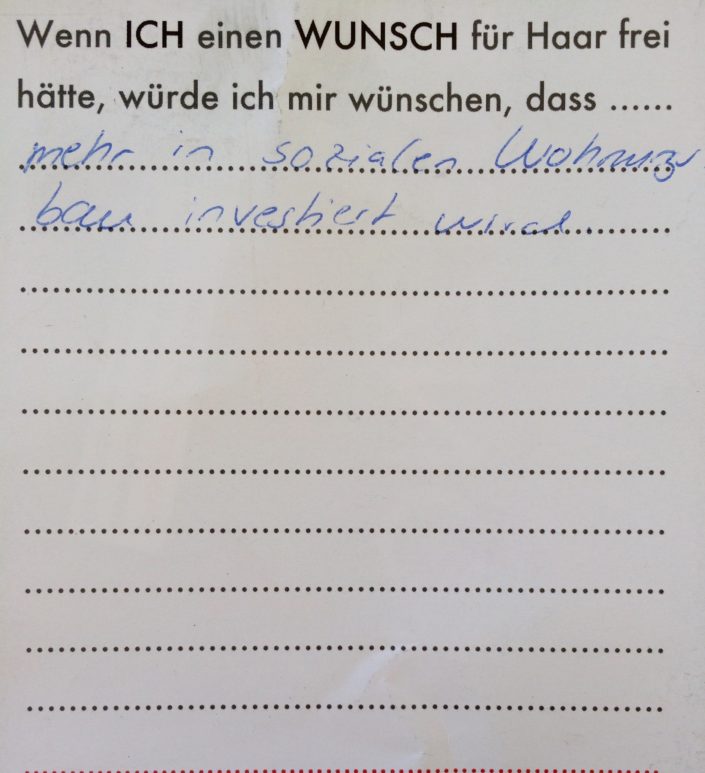 Wenn ICH einen WUNSCH für Haar frei
hätte, würde ich mir wünschen, dass ......
mehr in sozialen Wohnungs
bau investiert wird.